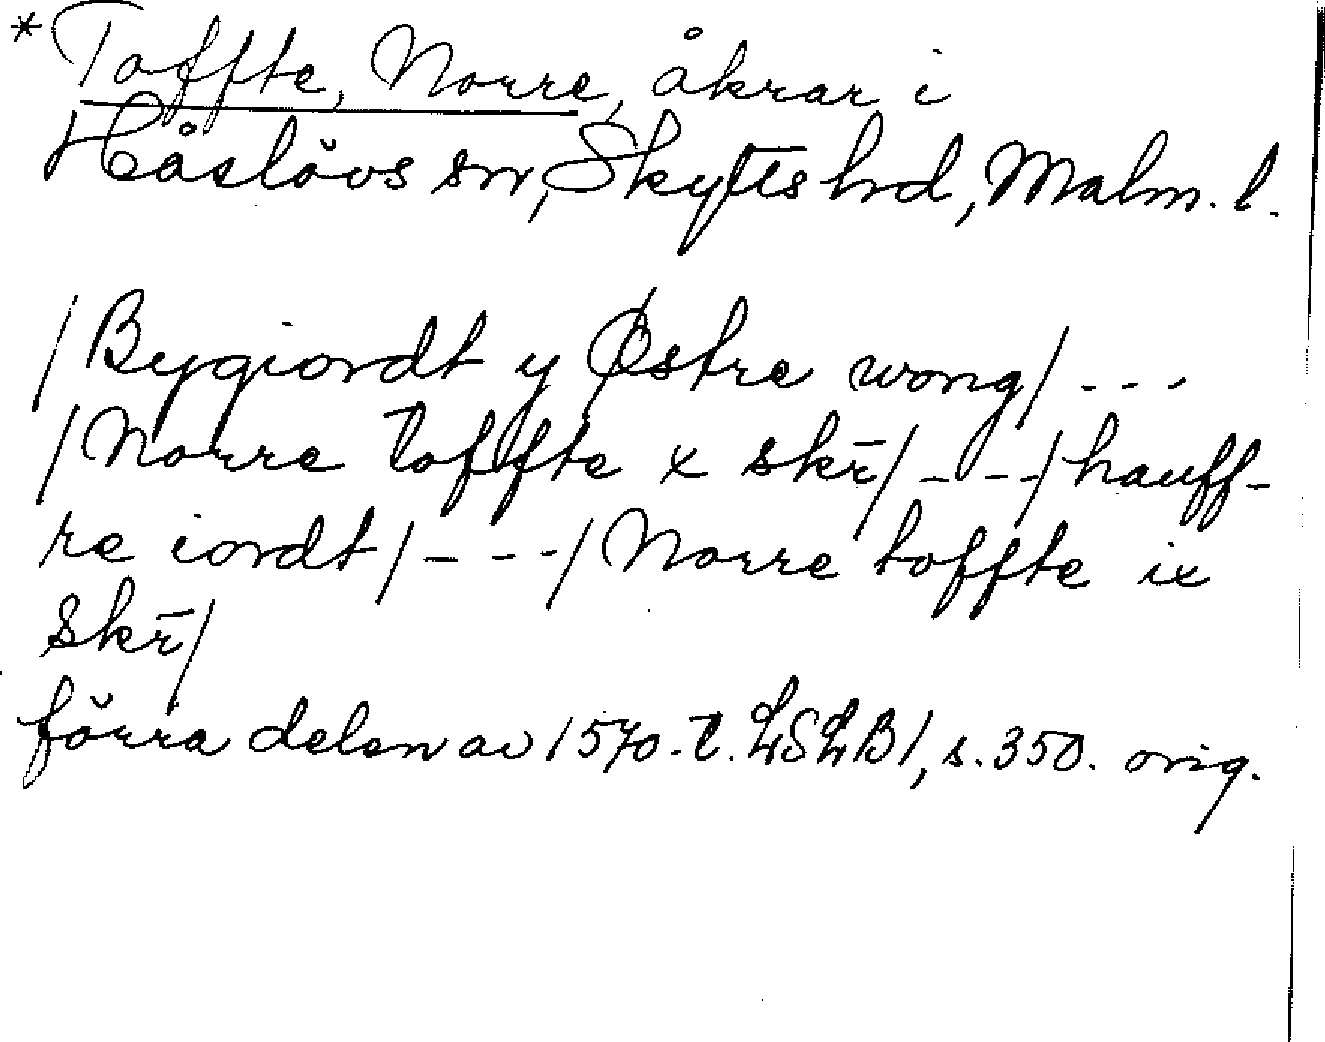 *Toffte, Norre, åkrar i
Håslövs sn, Skytts hd, Malm. l.
/Bygiordt y Østre wong/ ---
/Norre toffte x skr̄/ _ _ _ /hauff-
re iordt/ --- /Norre toffte ix
Skr̄/
förra delen av 1570-t. LSLB1, s. 350. orig.